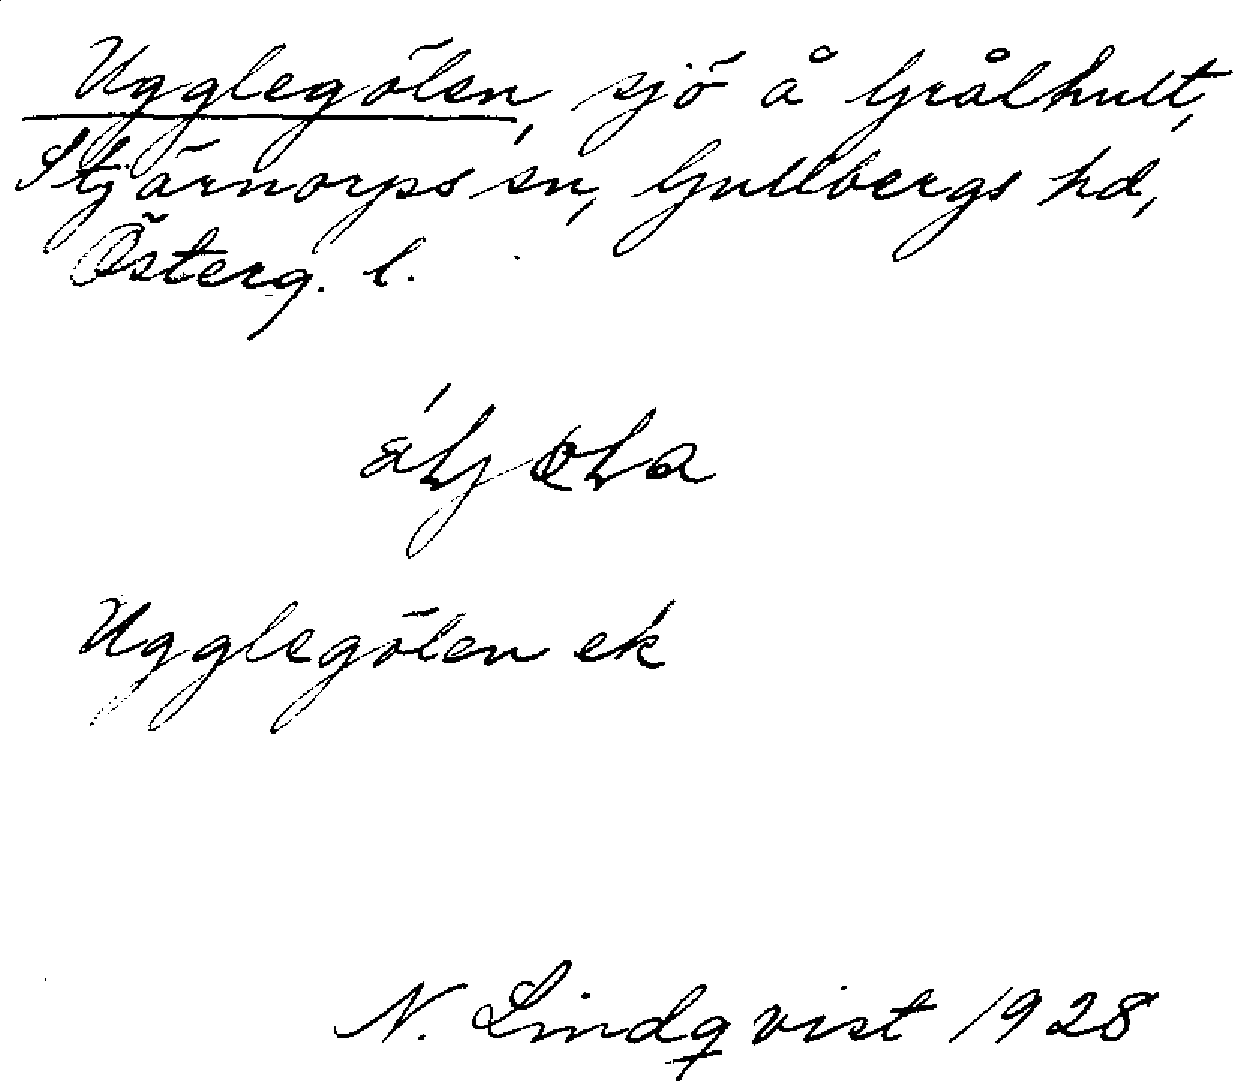 Ugglegölen, sjö å Grålhult,
Stjärnorps sn, Gullbergs hd,
Österg. l.
Ugglegölen ek
N. Lindqvist 1928